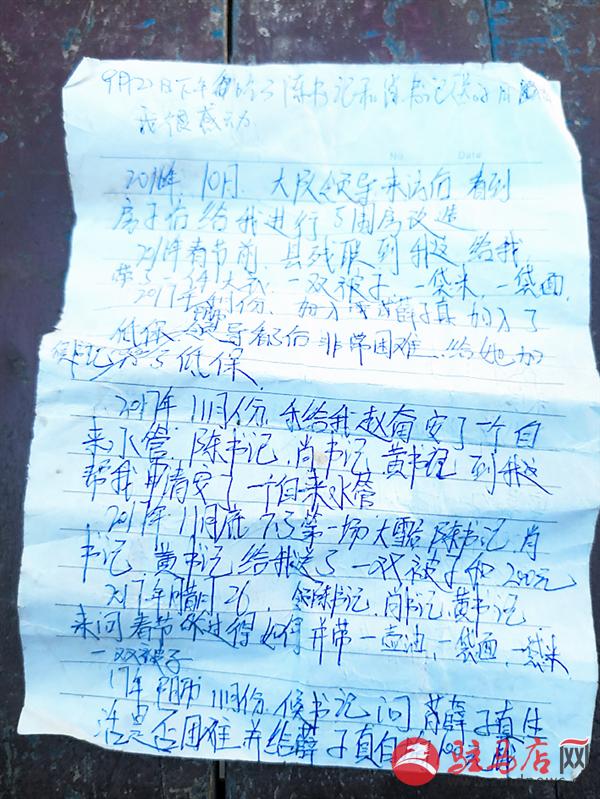 9月22日下午 陈书记和肖书记送了月
我很感动
No. Date
2016年 10月. 大队领导来访问 看到
房子后给我进行了危房改造
2017年春节前. 县残联到我这 给我
带了一件大衣. 一双被子. 一袋米. 一袋面.
2017年 月份. 薛子真 加入了
低保 领导看了后 非常困难. 给她加
侯书记 了低保.
2017年 11月份. 我给我赵奋 安了一个自
来水管. 陈书记. 肖书记. 黄书记 到我这
帮我申请安了一个自来水管
2017年 11月底 下了第一场大雪 陈书记. 肖
书记 黄书记 给我送了 一双被子和 200元
2017年腊月26. 陈书记. 肖书记. 黄书记
来问春节 过得如何 并带一壶油. 一袋面. 一袋米
一双被子
17年 11月份. 侯书记 问 薛子真生
活是否困难 并给薛子真 100元
驻马店网